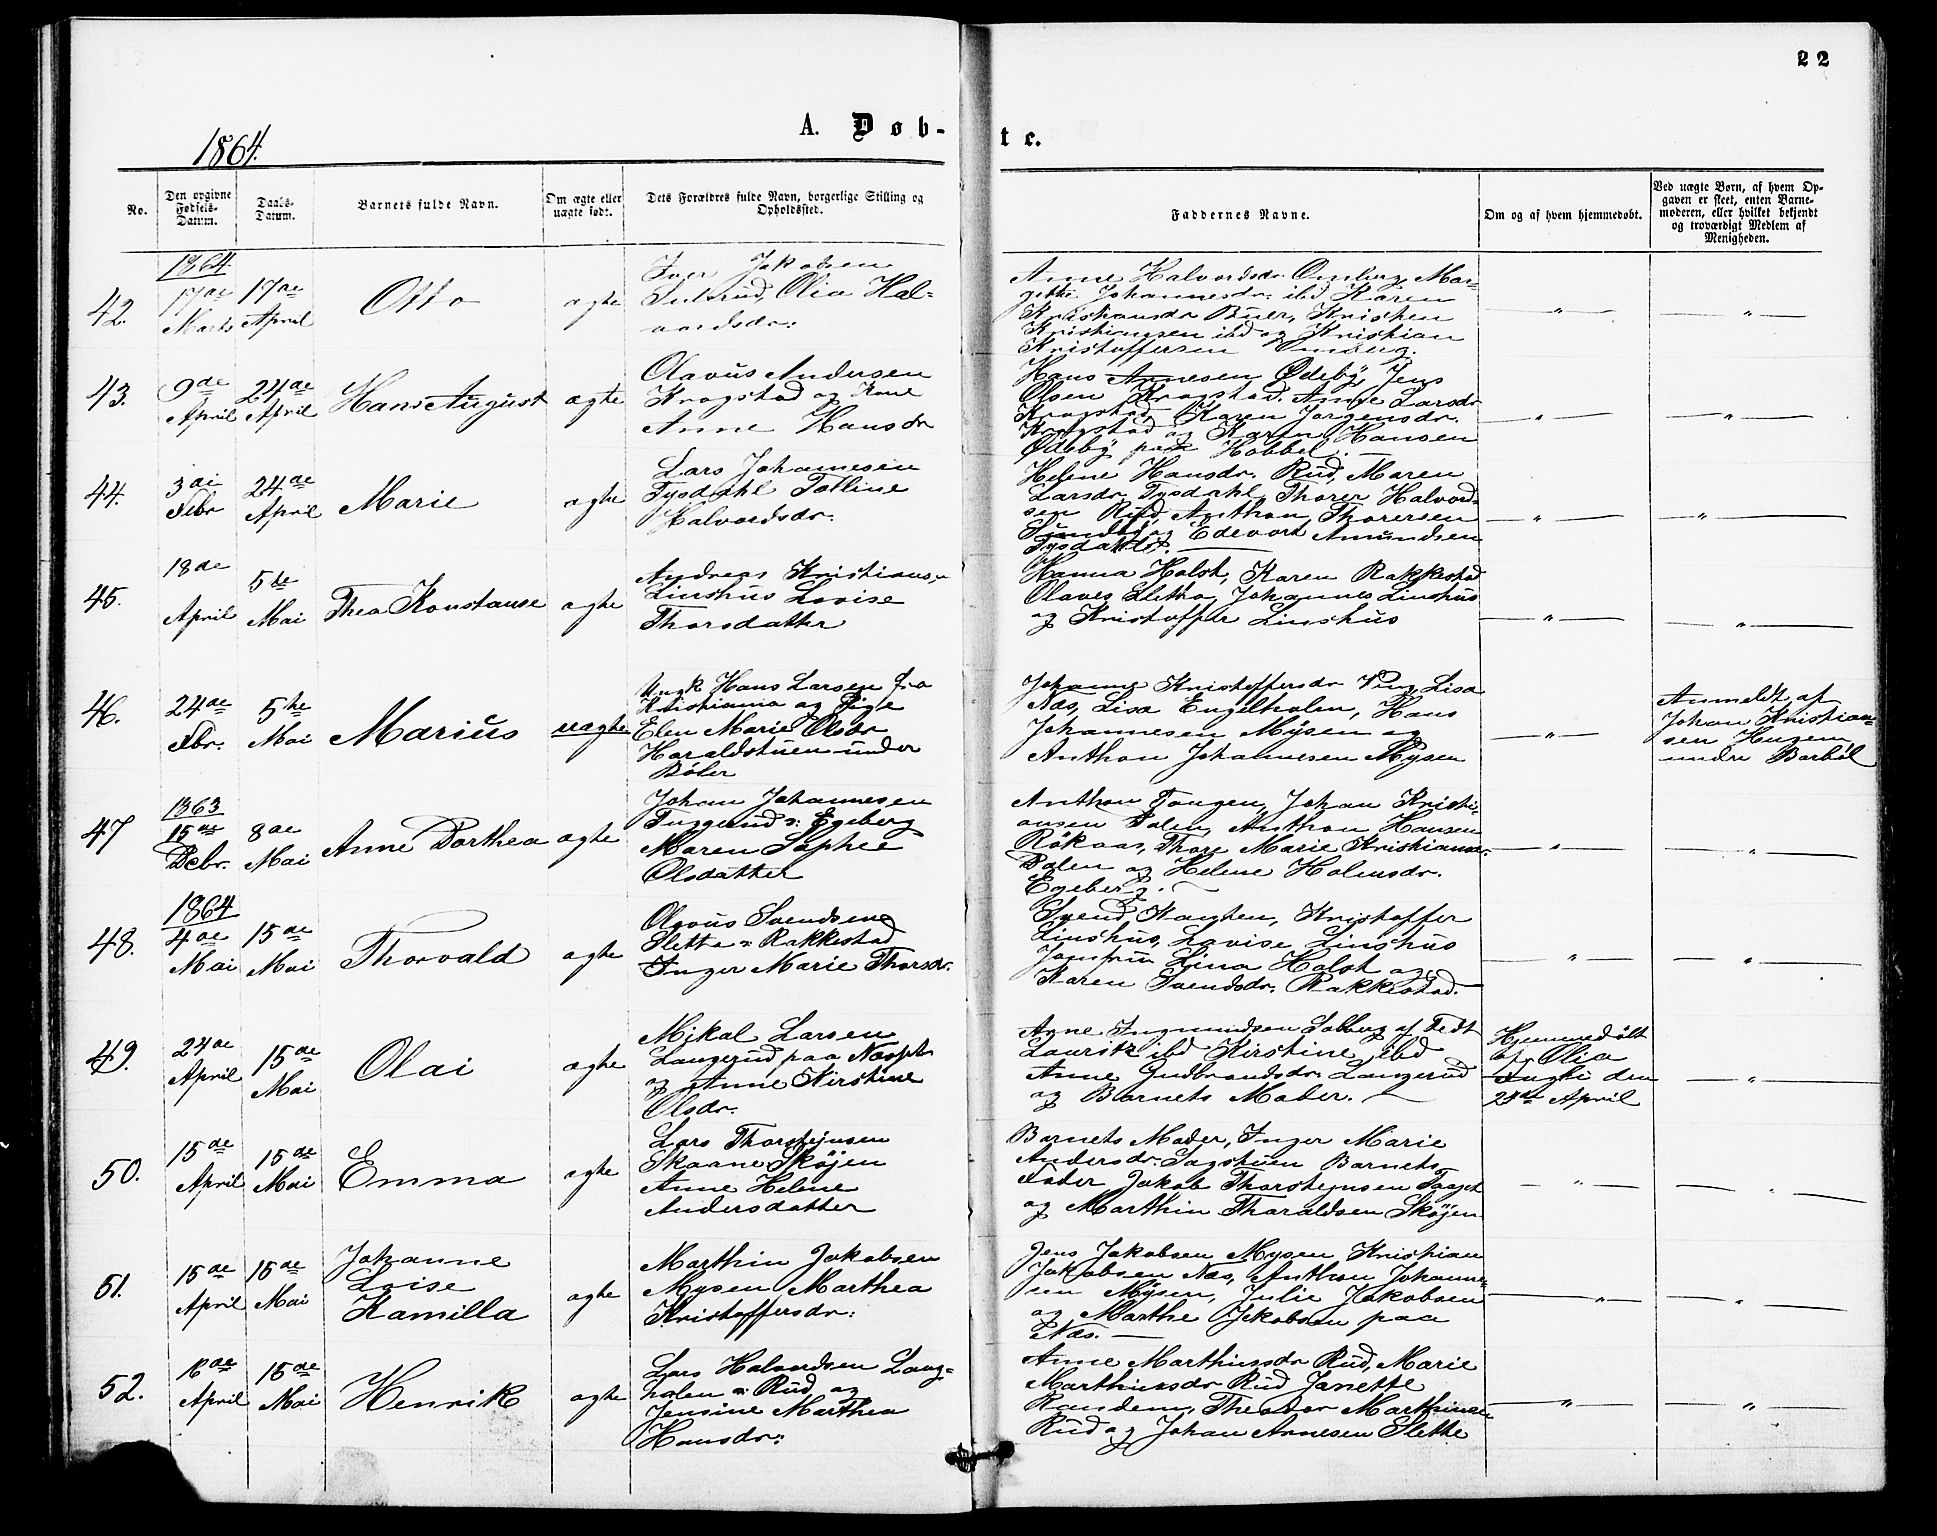 22
A. Døb-
te.
1864.
No.
Den opgivne Fødsels-Datum.
Daabs-Datum.
Barnets fulde Navn.
Om ægte eller uægte født.
Dets Forældres fulde Navn, borgerlige Stilling og Opholdssted.
Faddernes Navne.
Om og af hvem hjemmedøbt.
Ved uægte Børn, af hvem Opgaven er skeet, enten Barnemoderen, eller hvilket bekjendt og troværdigt Medlem af Menigheden.
1864
42.
17de Marts
17de April
Otto
ægte
Iver Jakobsen
Olia Hal-
vordsdr:
Anne Halvordsdr. Omberg, Mar-
gitte Johannesdr. ibd, Karen
Kristiansdr Buer, Kristen
Kristiansen ibd og Kristian
Kristoffersen Omberg.
43.
9de April
24de April
Hans August
ægte
Olavus Andersen
Krogstad og Kone
Anne Hansdr
Hans Arnesen Ødeby, Jens
Olsen Krogstad, Anne Larsdr
Krogstad, Karen Jørgensdr.
Krogstad og Karen Hansen
Ødeby paa Hobbel.
44.
3die Febr
24de April
Marie
ægte
Lars Johannesen
Tysdahl Tolline
Halvordsdr.
Helene Hansdr. Rud, Maren
Larsdr. Tysdahl, Thorer Halvord-
sen Rud, Anthon Thorersen
Sundby og Edevart Amundsen
Tysdahl.
45.
18de April
5te Mai
Thea Konstanse
ægte
Andreas Kristiansen
Linshus Lovise
Thorsdatter
Hanna Holst, Karen Rakkestad
Olaves Sletta, Johannes Linshus
og Kristoffer Linshus
46.
24de Fbr.
5te Mai
Marius
uægte
Ungk Hans Larsen fra
Kristiania og Pige
Elen Marie Olsdr
Haraldstuen under
Böler
Johanne Kristoffersdr Lisa
Næs, Lisa Engelholm, Hans
Johannesen Mysen og
Anthon Johannesen Mysen
Anmeldt af
Johan Kristian-
sen
undre Barböl
1863
47
15de Debr.
8de Mai
Anne Dorthea
ægte
Johan Johannesen
Tuggerud v: Egeberg
Maren Sophie
Olsdatter
Anthon Tangen, Johan Kristi-
ansen Dalen, Anthon Hansen
Rökaas, Thore Marie Kristiansdr.
Dalen og Helene Holmsdr.
Egeberg.
1864
48.
4de Mai
15de Mai
Thorvald
ægte
Olavus Svendsen
Sletta v: Rakkestad
Inger Marie Thorsdr.
Svend Kristoffer
Linshus, Lovise Linshus
Jomfru Lina Holst og
Karen Svendsdr. Rakkestad.
49.
24de April
15de Mai
Olai
ægte
Mikal Larsen
Langerud paa
og Anne Kirstine
Olsdr.
Arne Ingmundsen Solberg af
Lauritz ibd Kirstine ibd
Anne Gudbrandsdr. Langerud
og Barnets Moder.
Hjemmedöbt
af Olia
den
April
50.
15de April
15de Mai
Emma
ægte
Lars Thorstejnsen
Skaane Skøjen
Anne Helene
Andersdatter
Barnets Moder, Inger Marie
Andersdr. Sagstuen Barnets
Fader Jakob Thorstejnsen
og Marthin Tharaldsen Skøjen
51.
15de April
15de Mai
Johanne
Loise
Kamilla
ægte
Marthin Jakobsen
Mysen Marthea
Kristoffersdr:
Jens Jakobsen Mysen Kristian
Jakobsen Næs, Anthon Johanne-
sen Mysen, Julie Jakobsen
og Marthe Jakobsen paa
Næs.
52.
April
15de Mai
Henrik
ægte
Lars Halvordsen Lang-
holen v: Rud og
Jensine Marthea
Hansdr:
Anne Marthinsdr Rud, Marie
Marthinsdr Rud Janette
Randem, Theodor Marthinsen
Rud og Johan Arnesen Slette